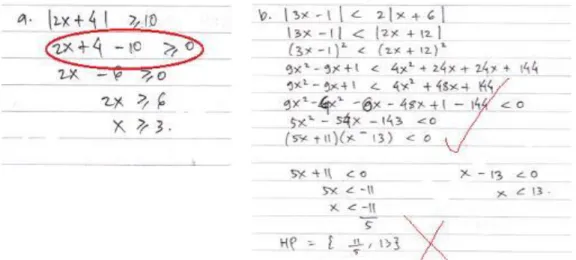 a. |2x+4| ≥ 10
2x+4 - 10 ≥ 0
2x - 6 ≥ 0
2x ≥ 6
x ≥ 3.
b. |3x-1| < 2|x+6|
|3x-1| < |2x+12|
(3x-1)² < (2x+12)²
9x²-9x+1 < 4x²+24x+24x+144
9x²-9x+1 < 4x²+48x+144
9x²-4x²-6x-48x+1-144 <0
5x²-54x-143 <0
(5x+11)(x-13) < 0
5x+11 <0 x-13 <0
5x <-11 x <13.
x <-11/5
HP = { 11/5, 13}